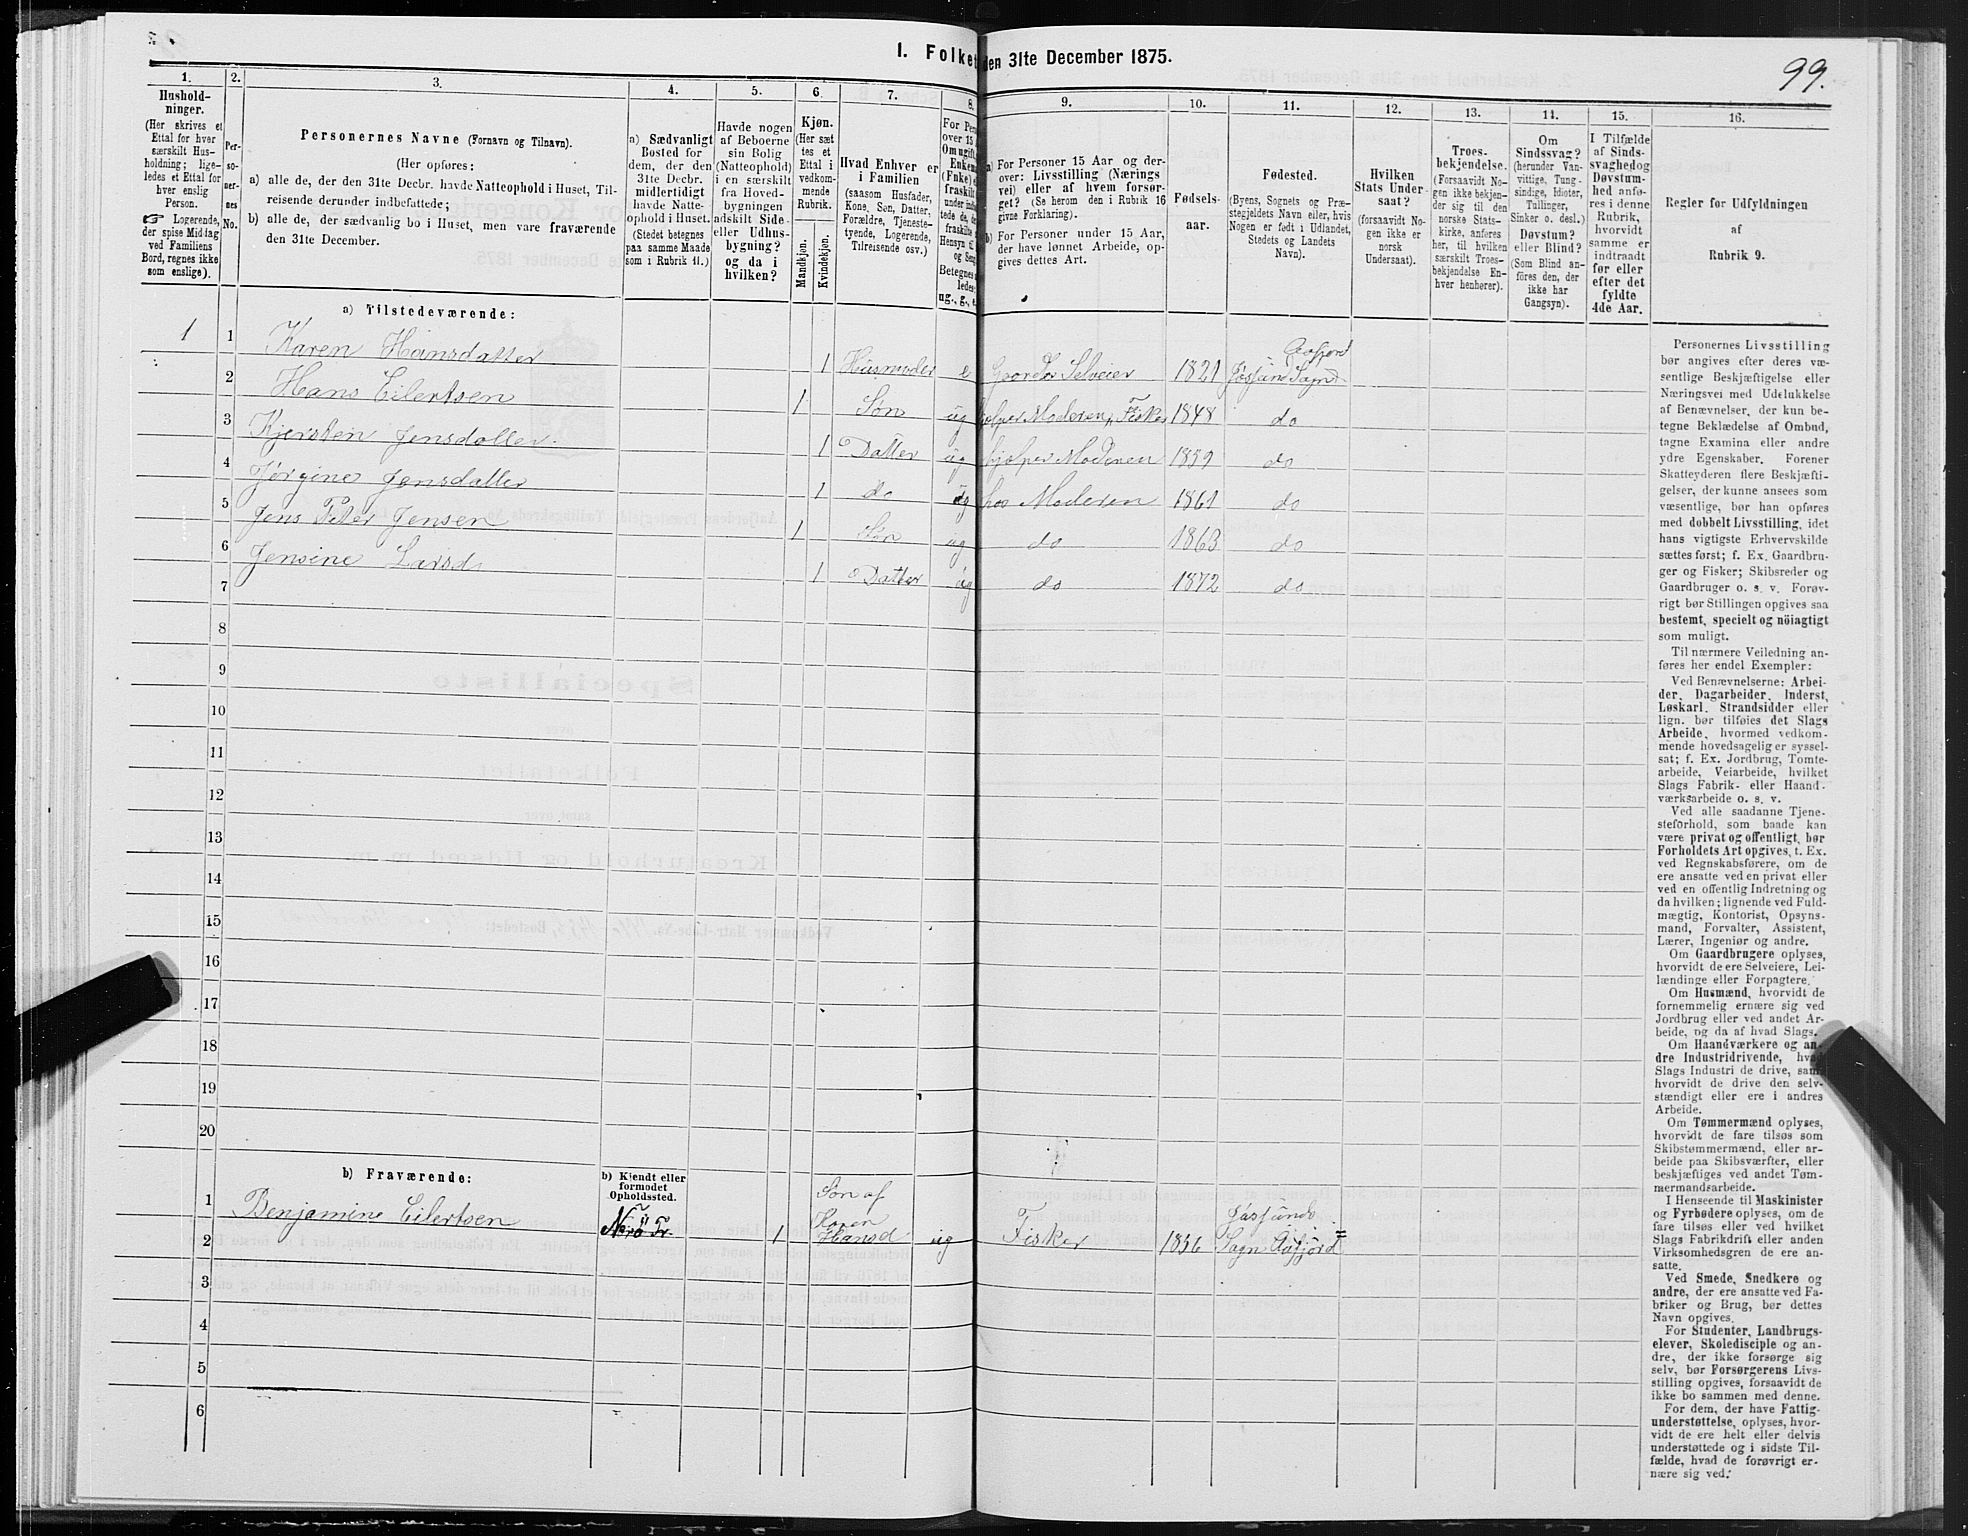 I. Folket
den 31te December 1875.
99.
1.
Hushold-
ninger.
(Her skrives et
Ettal for hver
særskilt Hus-
holdning; lige-
ledes et Ettal for
hver enslig
Person.
☞ Logerende,
der spise Middag
ved Familiens
Bord, regnes ikke
som enslige).
2.
Per-
so-
ner-
nes
No.
3.
Personernes Navne (Fornavn og Tilnavn).
(Her opføres:
a) alle de, der den 31te Decbr. havde Natteophold i Huset, Til-
reisende derunder indbefattede;
b) alle de, der sædvanlig bo i Huset, men vare fraværende
den 31te December.
4.
a) Sædvanligt
Bosted for
dem, der den
31te Decbr.
midlertidigt
havde Natte-
ophold i Huset.
(Stedet betegnes
paa samme Maade
som i Rubrik 11.)
5.
Havde nogen
af Beboerne
sin Bolig
(Natteophold)
i en særskilt
fra Hoved-
bygningen
adskilt Side-
eller Udhus-
bygning?
og da i
hvilken?
6.
Kjøn.
(Her sæt
tes et
Ettal i
vedkom-
mende
Rubrik.
Mandkjøn.
Kvindekjøn.
7.
Hvad Enhver er
i Familien
(saasom Husfader,
Kone, Søn, Datter,
Forældre, Tjeneste-
tyende, Logerende,
Tilreisende osv.)
8.
For Pers
over 15
Om ugift,
Enkem
(Fnke) e
fraskilt
under indb
tede de,
fraskilte
Hensyn ti
og Seng
Betegnes
ledes:
ug., g., e.
9.
a) For Personer 15 Aar og der-
over: Livsstilling (Nærings
vei) eller af hvem forsør-
get? (Se herom den i Rubrik 16
givne Forklaring).
b) For Personer under 15 Aar,
der have lønnet Arbeide, op-
gives dettes Art.
10.
Fødsels-
aar.
11.
Fødested.
(Byens, Sognets og Præ-
stegjeldets Navn eller, hvis
Nogen er født i Udlandet,
Stedets og Landets
Navn).
12.
Hvilken
Stats Under-
saat?
(forsaavidt No-
gen ikke er
norsk
Undersaat).
13.
Troes-
bekjendelse.
(Forsaavidt No-
gen ikke bekjen-
der sig til den
norske Stats-
kirke, anføres
her, til hvilken
særskilt Troes-
bekjendelse En-
hver henhører).
14.
Om
Sindssvag?
(herunder Van-
vittige, Tung-
sindige, Idioter,
Tullinger,
Sinker o. desl.)
Døvstum?
eller Blind?
(Som Blind an-
føres den, der
ikke har
Gangsyn).
15.
I Tilfælde
af Sinds-
svaghed og
Døvstum-
hed anfø-
res i denne
Rubrik,
hvorvidt
samme er
indtraadt
før eller
efter det
fyldte
4de Aar.
16.
Regler for Udfyldningen
af
Rubrik 9.
a) Tilstedeværende:
1 1 Karen Hansdatter 1 Husmoder e Gaardbr Selveier 1821 Jøssund Sogn Aafjord
2 Hans Eilertsen 1 Søn ug hjælper Moderen, Fisker 1848 do
3 Kjersten Jensdatter 1 Datter ug hjælper Moderen 1859 do
4 Jørgine Jensdatter 1 do ug hos Moderen 1861 do
5 Jens Peter Jensen 1 Søn ug do 1863 do
6 Jensine Larsd 1 Datter ug do 1872 do
7
8
9
10
11
12
13
14
15
16
17
18
19
20
b) Fraværende:
b) Kjendt eller
formodet
Opholdssted.
1 Benjamine Eilertsen Nærö Fr. 1 Søn af
Karen
Hansd ug Fisker 1856 Jøssunds
Sogn Aafjord
2
3
4
5
6
Personernes Livsstilling
bør angives efter deres væ-
sentlige Beskjæftigelse eller
Næringsvei med Udelukkelse
af Benævnelser, der kun be-
tegne Beklædelse af Ombud,
tagne Examina eller andre
ydre Egenskaber. Forener
Skatteyderen flere Beskjæfti-
gelser, der kunne ansees som
væsentlige, bør han opføres
med dobbelt Livsstilling, idet
hans vigtigste Erhvervskilde
sættes først; f. Ex. Gaardbru-
ger og Fisker; Skibsreder og
Gaardbruger o. s. v. Forøv-
rigt bør Stillingen opgives saa
bestemt, specielt og nöiagtigt
som muligt.
Til nærmere Veiledning an-
føres her endel Exempler:
Ved Benævnelserne: Arbei-
der, Dagarbeider, Inderst,
Løskarl, Strandsidder eller
lign. bør tilføies det Slags
Arbeide, hvormed vedkom-
mende hovedsagelig er syssel-
sat; f. Ex. Jordbrug, Tomte-
arbeide, Veiarbeide, hvilket
Slags Fabrik- eller Haand-
værksarbeide o. s. v.
Ved alle saadanne Tjene-
steforhold, som baade kan
være privat og offentligt, bør
Forholdets Art opgives, t. Ex.
ved Regnskabsførere, om de
ere ansatte ved en privat eller
ved en offentlig Indretning og
da hvilken; lignende ved Fuld-
mægtig, Kontorist, Opsyns-
mand, Forvalter, Assistent,
Lærer, Ingeniør og andre.
Om Gaardbrugere oplyses,
hvorvidt de ere Selveiere, Lei-
lændinge eller Forpagtere.
Om Husmænd, hvorvidt de
fornemmelig ernære sig ved
Jordbrug eller ved andet Ar-
beide, og da af hvad Slags.
Om Haandværkere og an-
dre Industridrivende, hvad
Slags Industri de drive, samt
hvorvidt de drive den selv-
stændigt eller ere i andres
Arbeide.
Om Tømmermænd oplyses,
hvorvidt de fare tilsøs som
Skibstømmermænd, eller ar-
beide paa Skibsværfter, eller
beskjæftiges ved andet Tøm-
mermandsarbeide.
I Henseende til Maskinister
og Fyrbødere oplyses, om de
fare tilsøs eller ved hvilket
Slags Fabrikdrift eller anden
Virksomhedsgren de ere an-
satte.
Ved Smede, Snedkere og
andre, der ere ansatte ved Fa-
briker og Brug, bør dettes
Navn opgives.
For Studenter, Landbrugs-
elever, Skoledisciple og an-
dre, der ikke forsørge sig
selv, bør Forsørgerens Livs-
stilling opgives, forsaavidt de
ikke bo sammen med denne.
For dem, der have Fattig-
understøttelse, oplyses, hvor-
vidt de ere helt eller delvis
understøttede og i sidste Til-
fælde, hvad de forøvrigt er-
nære sig ved.